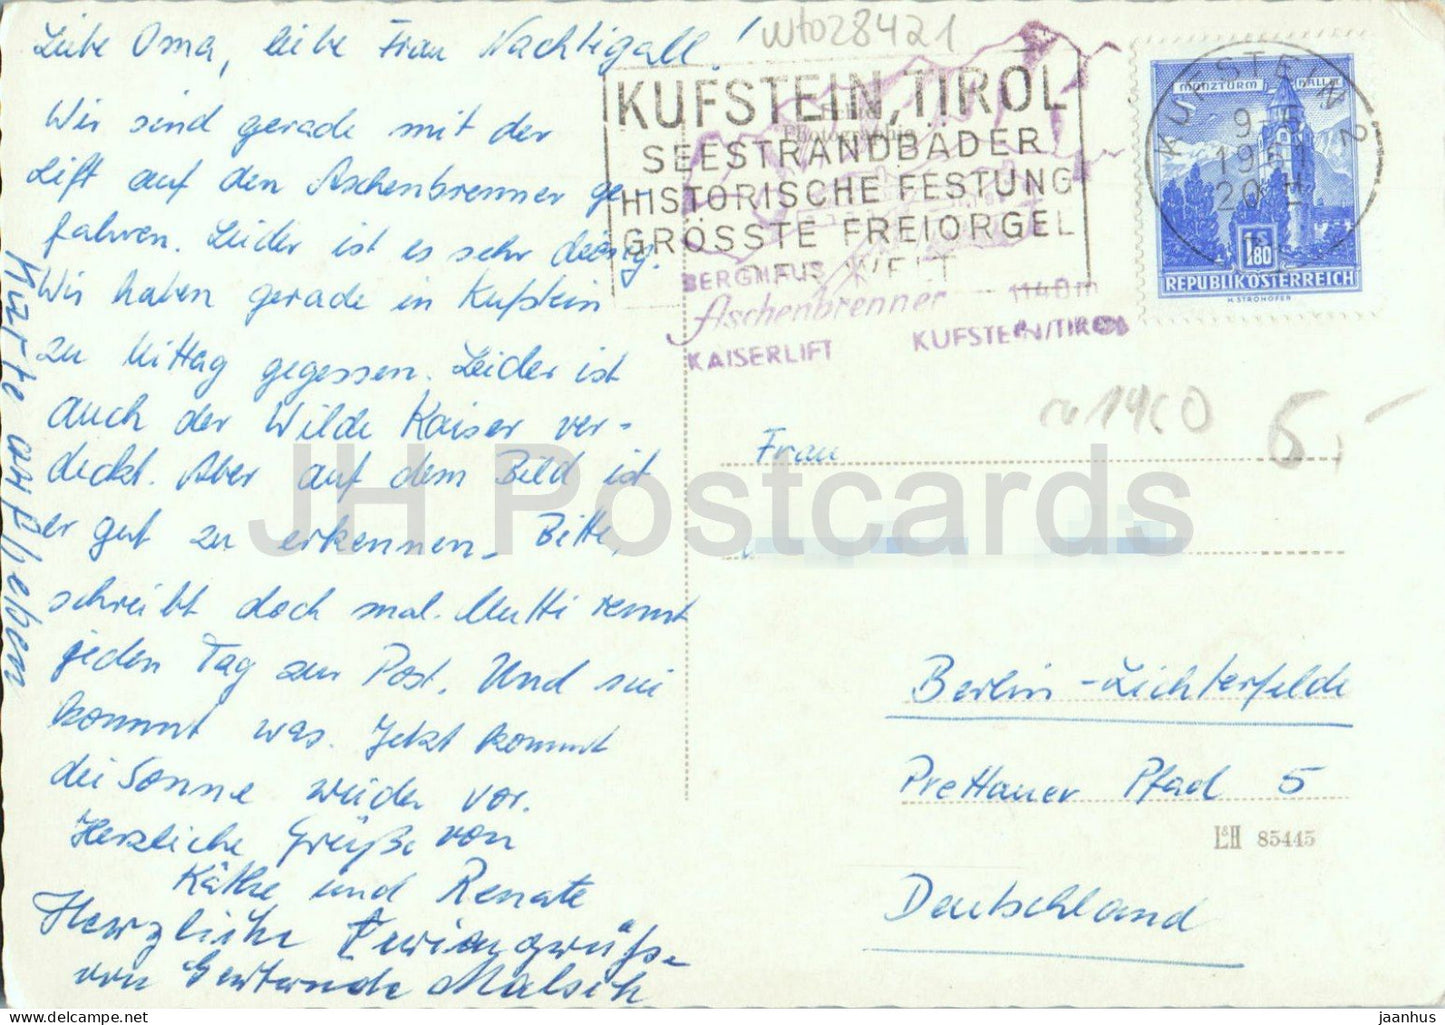 Liebe Oma, liebe Frau Nachtigall!
Wir sind gerade mit der
Lift auf den Aschenbrenner ge-
fahren. Leider ist es sehr diesig.
Wir haben gerade in Kufstein
zu Mittag gegessen. Leider ist
auch der Wilde Kaiser ver-
deckt. Aber auf dem Bild ist
er gut zu erkennen. Bitte,
schreibt doch mal. Mutti rennt
jeden Tag zur Post. Und nie
kommt was. Jetzt kommt
die Sonne wieder vor.
Herzliche Grüße von
Käthe und Renate
Herzliche Feriengrüße
von Gertrude
Karte aufheben
wto28421
KUFSTEIN, TIROL
SEESTRANDBÄDER
HISTORISCHE FESTUNG
GRÖSSTE FREIORGEL
DER WELT
Photographie
BERGHAUS
Aschenbrenner 1140m
KAISERLIFT KUFSTEIN/TIROL
KUFSTEIN 2
1961
20
MÜNZTURM HALL i.T.
1.80
REPUBLIK ÖSTERREICH
H. STROHOFER
6,-
Frau
Berlin-Lichterfelde
Prettauer Pfad 5
L&H 85445
Deutschland
JH Postcards
jaanhus.com